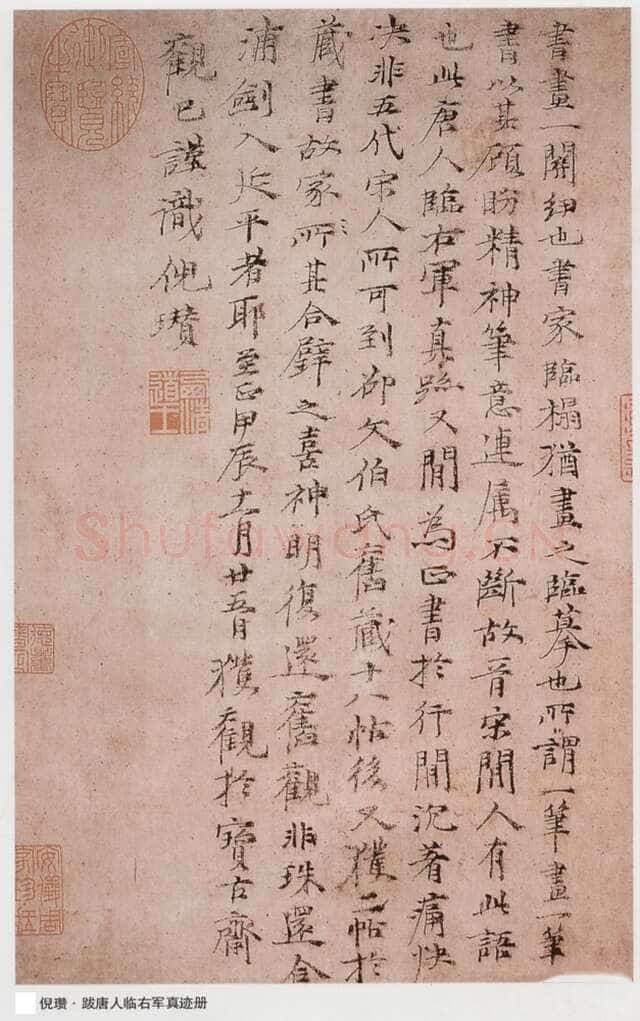 書畫一關紐也書家臨榻猶畫之臨摹也所謂一筆畫一筆
書以其顧盼精神筆意連属不斷故晉宋間人有此語
也此唐人臨右軍真跡又間為正書於行間沉着痛快
决非五代宋人所可到卻欠伯氏舊藏十八帖後又獲二帖於
蔵書故家所其合璧之喜神明復還舊觀非珠還合
浦劍入延平者耶至正甲辰十一月廿五日獲觀於寶古齋
觀已謹識倪瓚
宣統御覽之寶
安儀周家珍藏
Shufawang.CN
倪瓒·跋唐人临右军真迹册